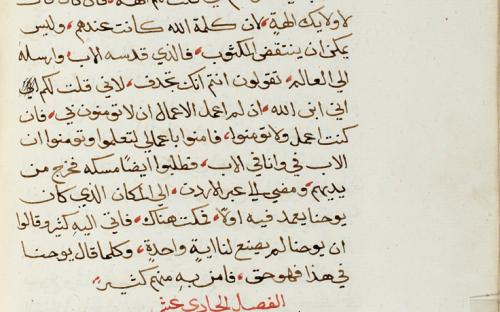 لاولايك الهة، لان كلمة الله كانت عندهم، وليس
يمكن ان ينتقض المكتوب، فالذي قدسه الاب وارسله
الى العالم، تقولون انتم انك تجدف، لاني قلت لكم
اني ابن الله، ان لم اعمل الاعمال ان لا تومنون بي، فان
كنت اعمل ولا تومنوا، فامنوا باعمالي لتعلموا وتومنوا ان
الاب في وانا في الاب، فطلبوا ايضًا مسكه فخرج من
يديهم، ومضى الى عبر الاردن، الى المكان الذي كان
يوحنا يعمد فيه اولًا، فمكث هناك، فاتى اليهِ كثير وقالوا
ان يوحنا لم يصنع لنا ايةٍ واحدةٍ، وكلما قال يوحنا
في هذا فهو حق، فامن بهِ منهم كثيرًا
الفصل الحادي عشر